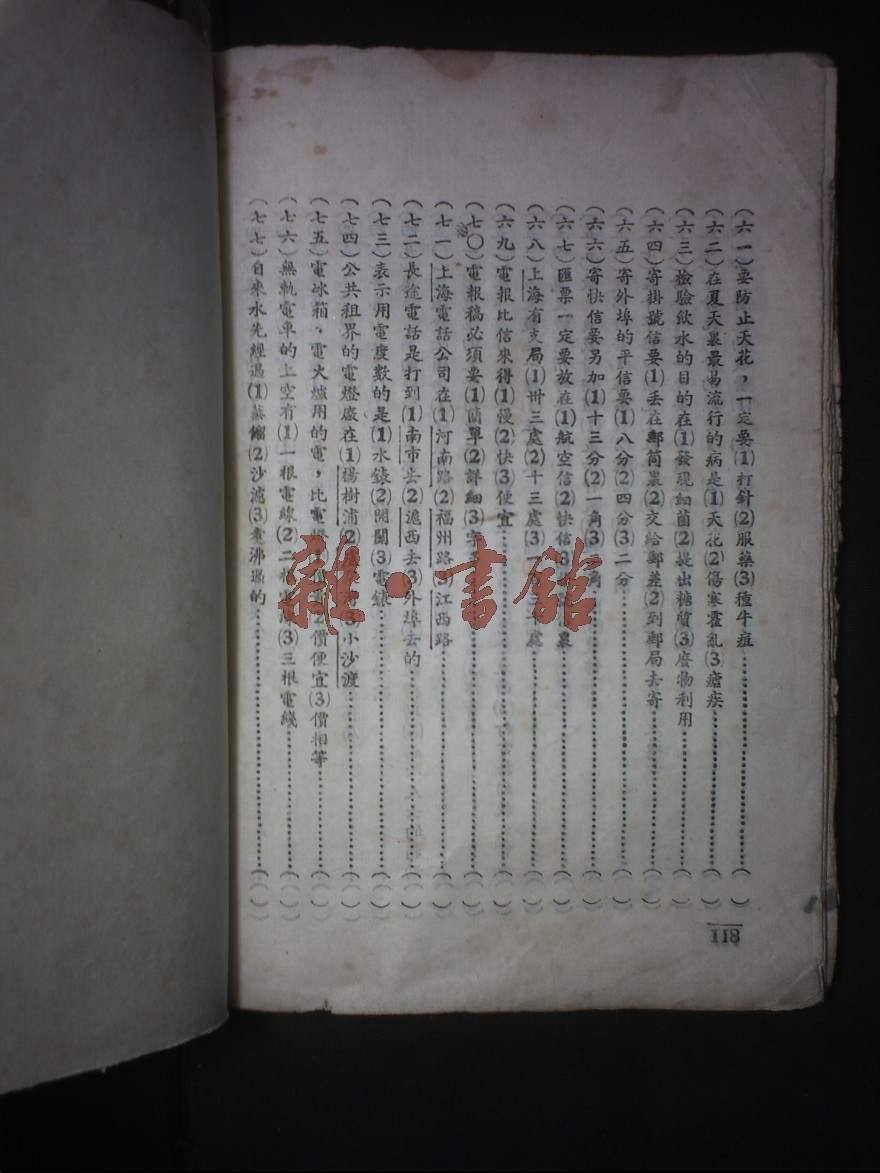 (六一)要防止天花，一定要(1)打針(2)服藥(3)種牛痘………( )
(六二)在夏天裏最易流行的病是(1)天花(2)傷寒霍亂(3)瘧疾………( )
(六三)檢驗飲水的目的在(1)發現細菌(2)提出糖質(3)廢物利用………( )
(六四)寄掛號信要(1)丟在郵筒裏(2)交給郵差(2)到郵局去寄………( )
(六五)寄外埠的平信要(1)八分(2)四分(3)二分………( )
(六六)寄快信要另加(1)十三分(2)一角(3)二角………( )
(六七)匯票一定要放在(1)航空信(2)快信(3)裏………( )
(六八)上海有支局(1)卅三處(2)十三處(3)一百三十處………( )
(六九)電報比信來得(1)慢(2)快(3)便宜………( )
(七〇)電報稿必須要(1)簡單(2)詳細(3)字………( )
(七一)上海電話公司在(1)河南路(2)福州路(3)江西路………( )
(七二)長途電話是打到(1)南市去(2)滬西去(3)外埠去的………( )
(七三)表示用電度數的是(1)水錶(2)開關(3)電錶………( )
(七四)公共租界的電燈廠在(1)楊樹浦(2)(3)小沙渡………( )
(七五)電冰箱、電火爐用的電，比電燈(1)價(2)價便宜(3)價相等………( )
(七六)無軌電車的上空有(1)一根電線(2)二根電線(3)三根電綫………( )
(七七)自來水先經過(1)蒸餾(2)沙濾(3)煮沸過的………( )
118
雜·書館